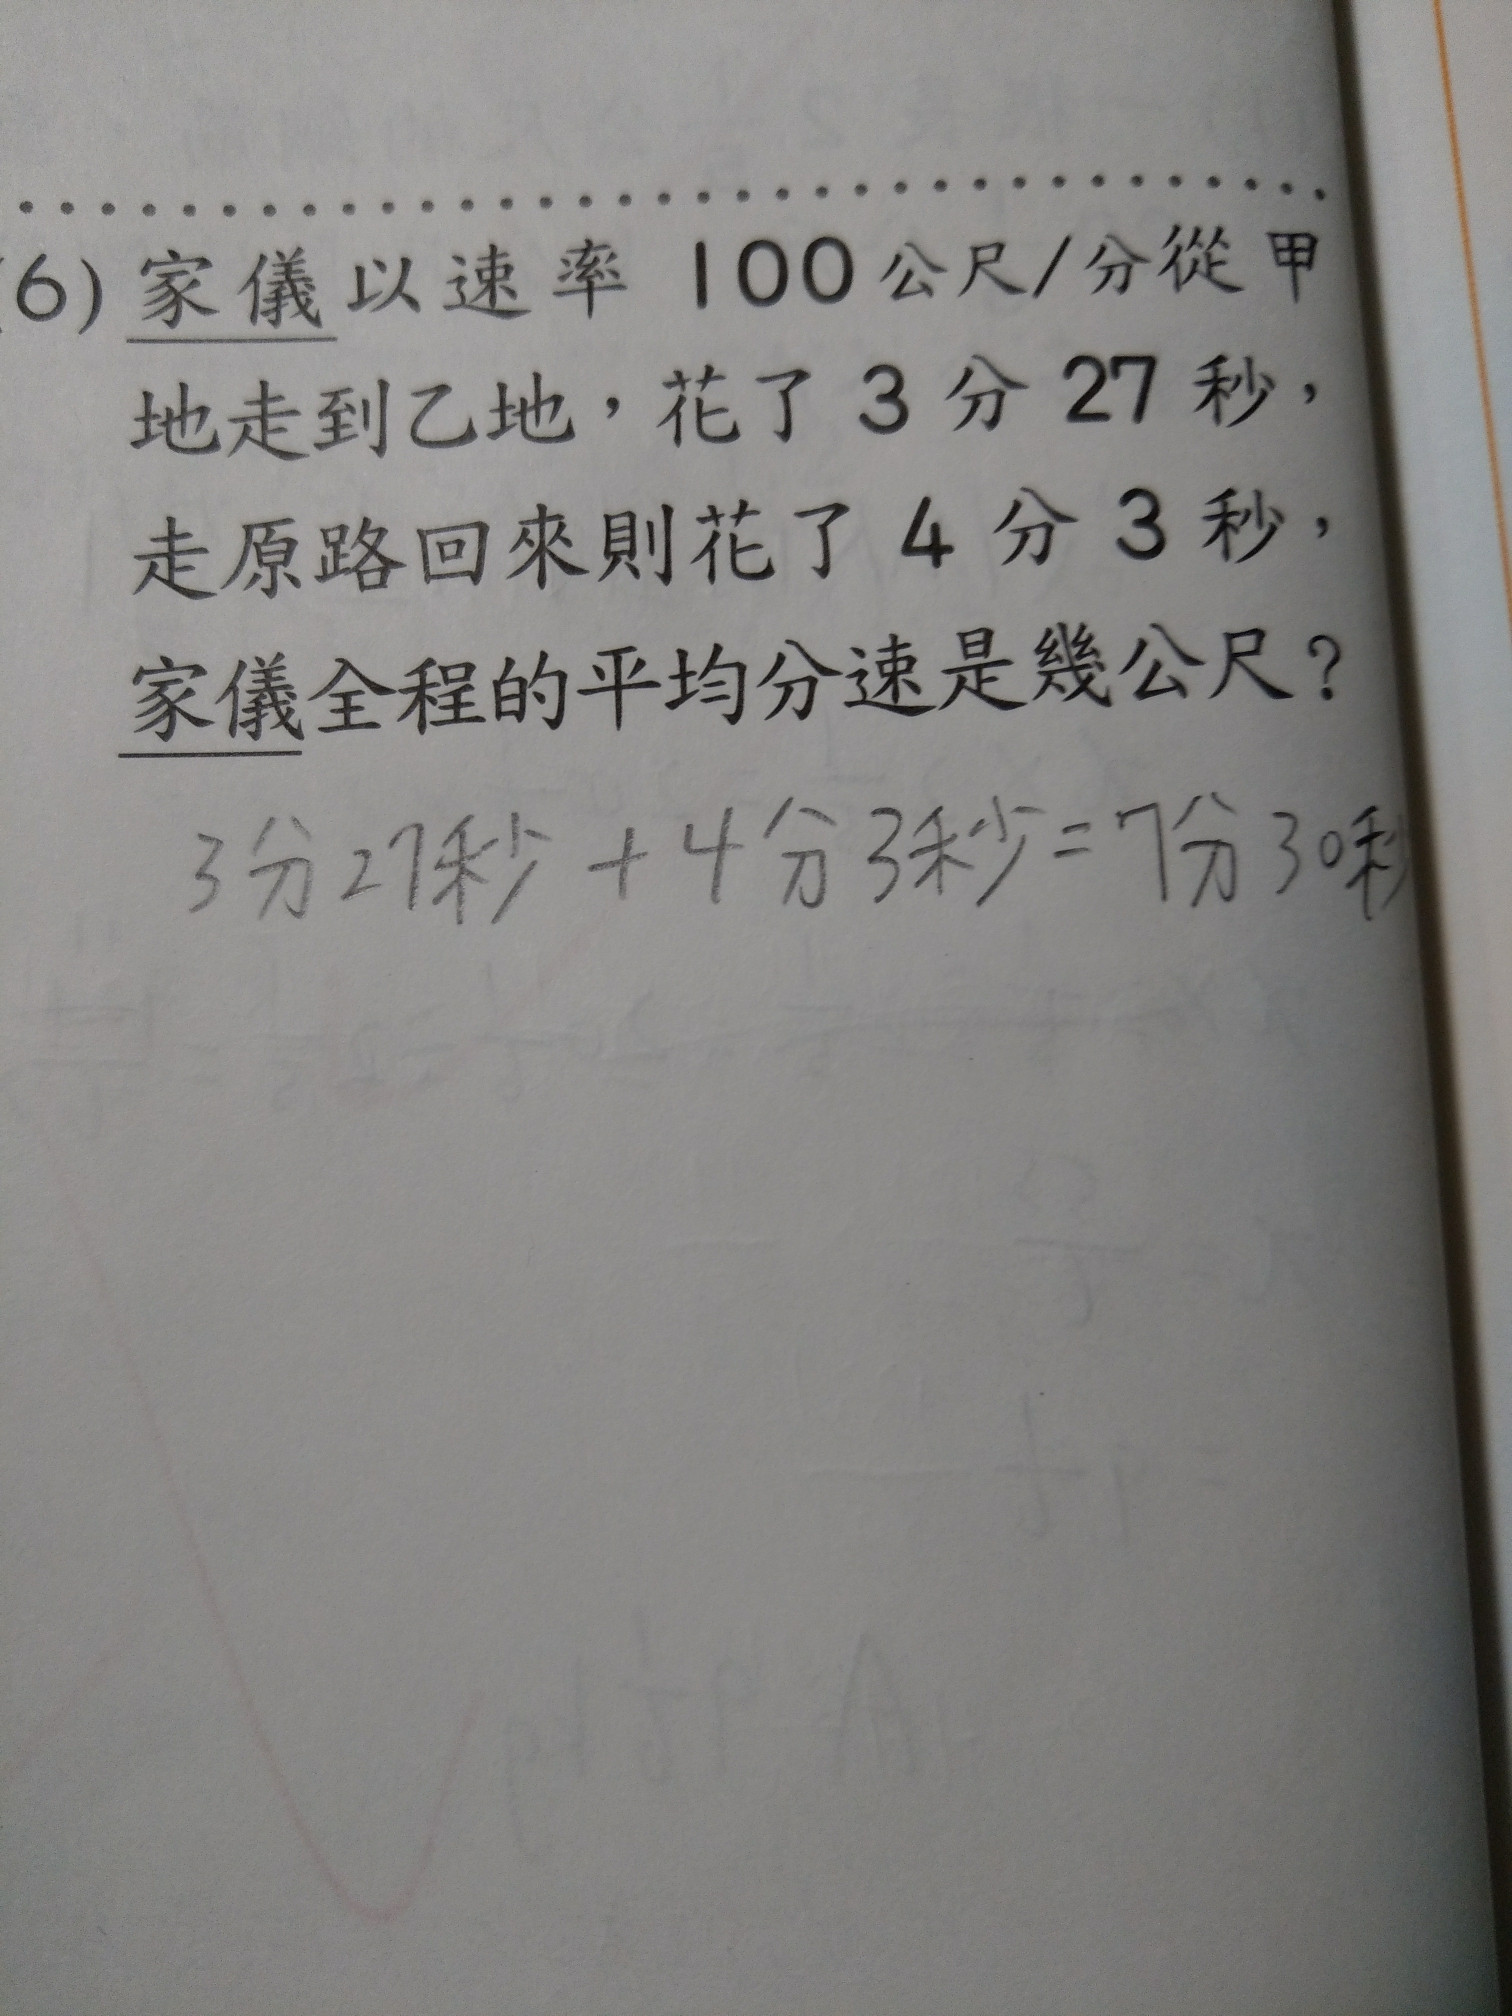 (6) 家儀以速率 100公尺/分從甲
地走到乙地，花了 3 分 27 秒，
走原路回來則花了 4 分 3 秒，
家儀全程的平均分速是幾公尺？
3分27秒+4分3秒=7分30秒